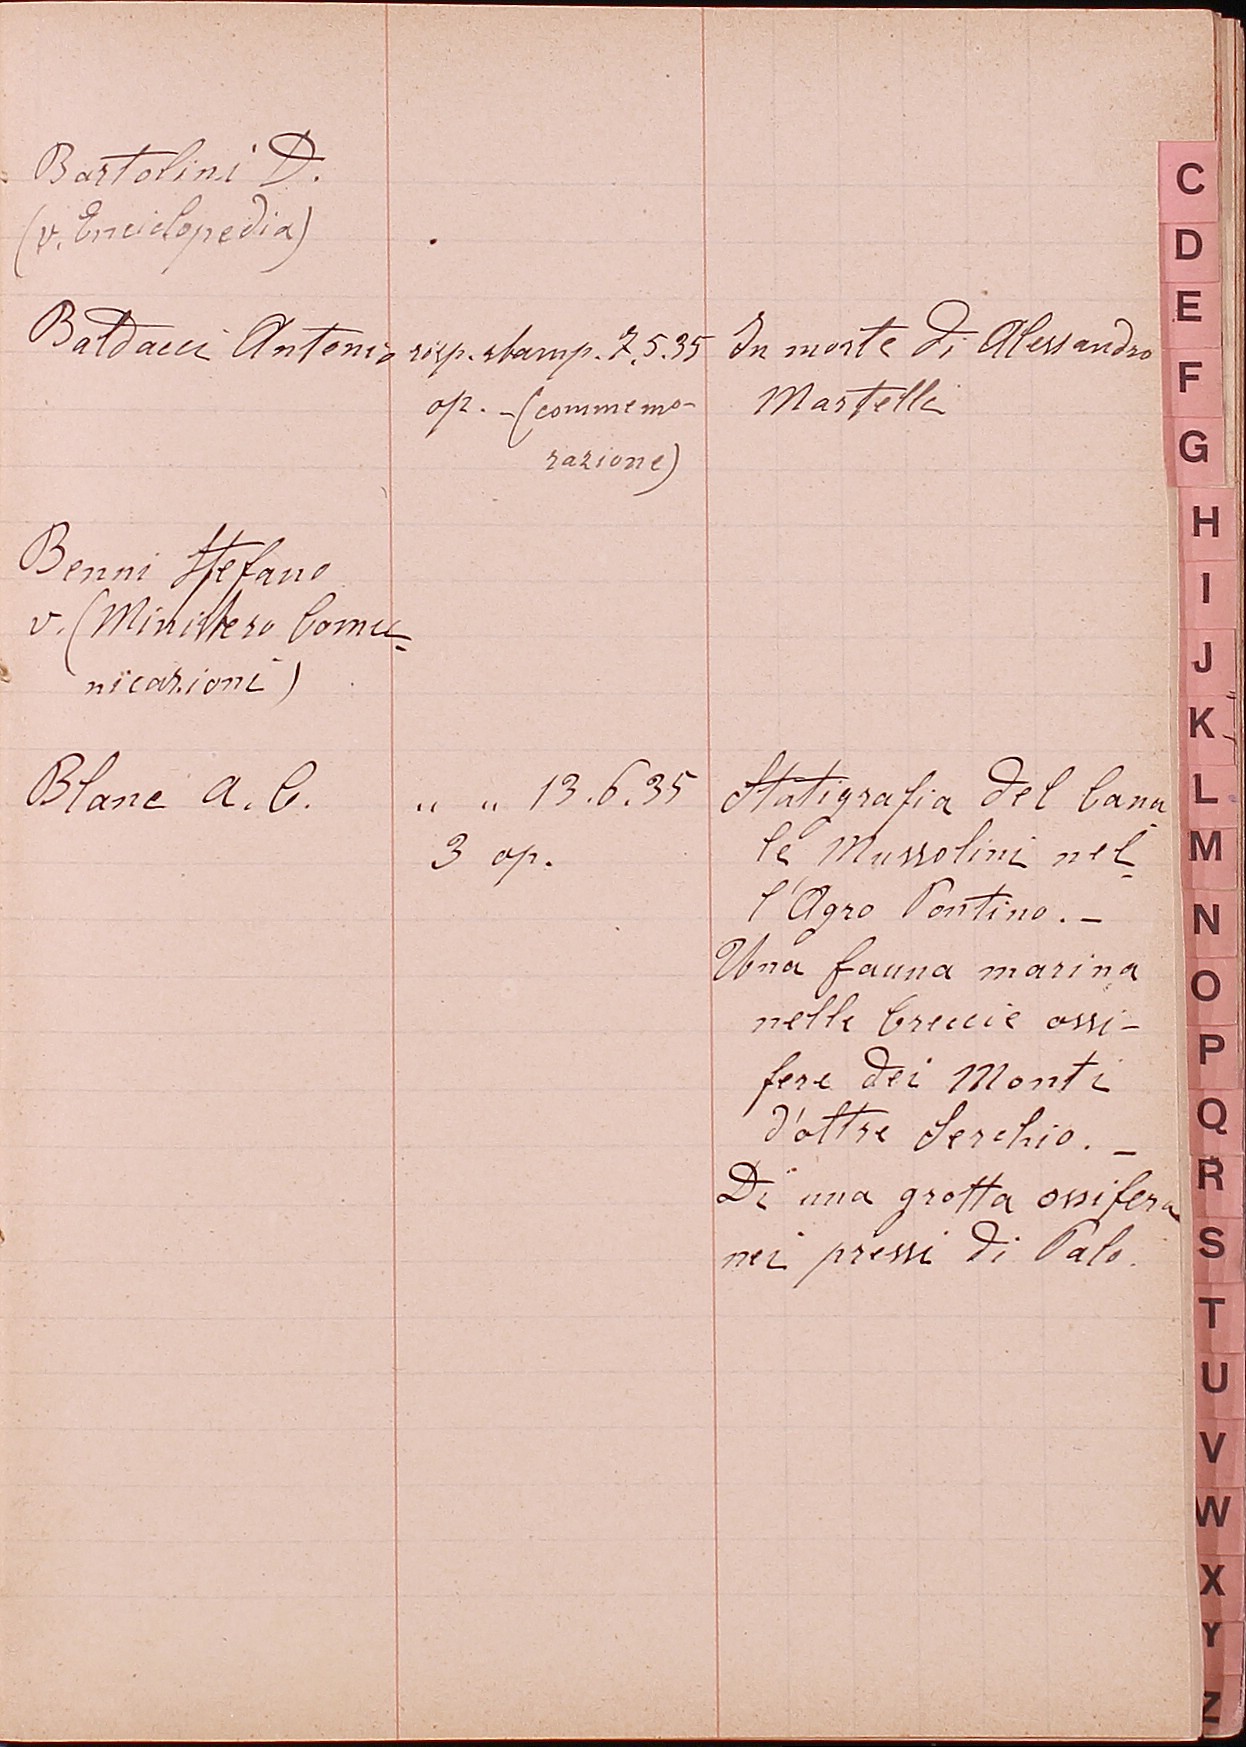 Bartolini D.
(v. Enciclopedia)
Baldacci Antonio risp. stamp. 7.5.35 In morte di Alessandro
op. - (commemo- Martelli
razione)
Benni Stefano
v. (Ministero Comu=
nicazioni)
Blanc A. C. " " 13.6.35 Statigrafia del Cana
3 op. le Mussolini nel
l'Agro Pontino. -
Una fauna marina
nelle brecce ossi-
fere dei Monti
d'oltre Serchio. -
Di una grotta ossifera
nei pressi di Palo.
C
D
E
F
G
H
I
J
K
L
M
N
O
P
Q
R
S
T
U
V
W
X
Y
Z